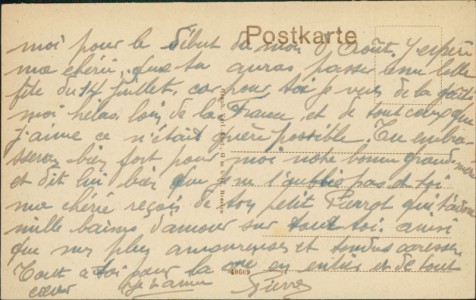 Postkarte
moi pour le début du mois d'Août. J'espère
ma chérie, que tu auras passer une belle
fête du 14 juillet, car pour toi je viens de la
moi helas, loin de la France, et de tout ceux que
j'aime ce n'était guère possible. Tu embras-
seras bien fort pour moi notre bonne grand-mère
et dit lui bien que je ne l'oublie pas et toi
ma chérie reçois de ton petit Pierrot qui t'adore
mille baisers d'amour sur tout toi ainsi
que mes plus amoureuses et tendres caresses.
Tout a toi pour la vie en entier et de tout
cœur Je t'aime Pierre